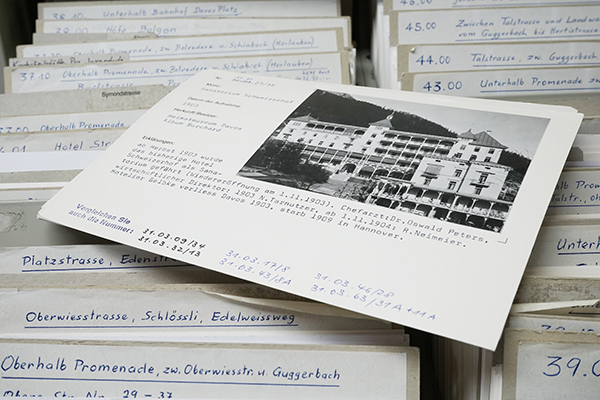 38.10 Unterhalb Bahnhof Davos Platz
38.00 Höfji Bolgen
Oberhalb Promenade, zw. Belvedere u. Schiabach (Horlauben)
37.10 Oberhalb Promenade, zw. Belvedere u. Schiabach (Horlauben)
Symondstrasse
Oberhalb Prom
Hotel
45.00 Zwischen Talstrasse und Landw
vom Guggerbach bis Hertistrasse
44.00 Talstrasse, zw. Guggerbach
43.00 Unterhalb Promenade zw
Sanatorium Schweizerhof
Datum der Aufnahme:
1903
Heimatmuseum Davos
Album Burchard
Erklärungen:
Ab Herbst 1903 wurde
das bisherige Hotel
Schweizerhof als Sana-
torium geführt (Wiedereröffnung am 1.11.1903). Chefarzt: Dr. Oswald Peters,
wirtschaftlicher Direktor: 1903 N. Tarnutzer, ab 1.11.1904: H. Neimeier.
Hotelier Gelbke verliess Davos 1903, starb 1909 in Hannover.
Vergleichen Sie
auch die Nummer:
31.03.09/34
31.03.32/13
31.03.17/8
31.03.43/8A
31.03.46/28
31.03.63/31A+11A
Talstr.,
Unterh
Platzstrasse, Edenstr
Oberwiesstrasse, Schlössli, Edelweissweg
Oberhalb Promenade, zw. Oberwiesstr. u. Guggerbach
Obere Str. Nr. 29 - 37
39.0